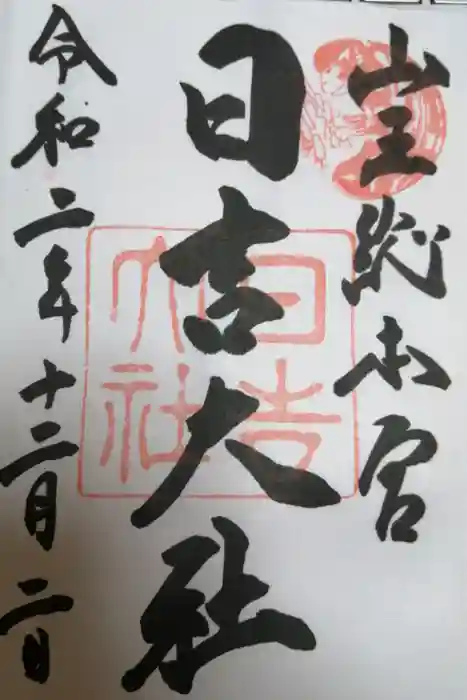 山王総本宮
日吉大社
日吉大社
令和二年十二月二日